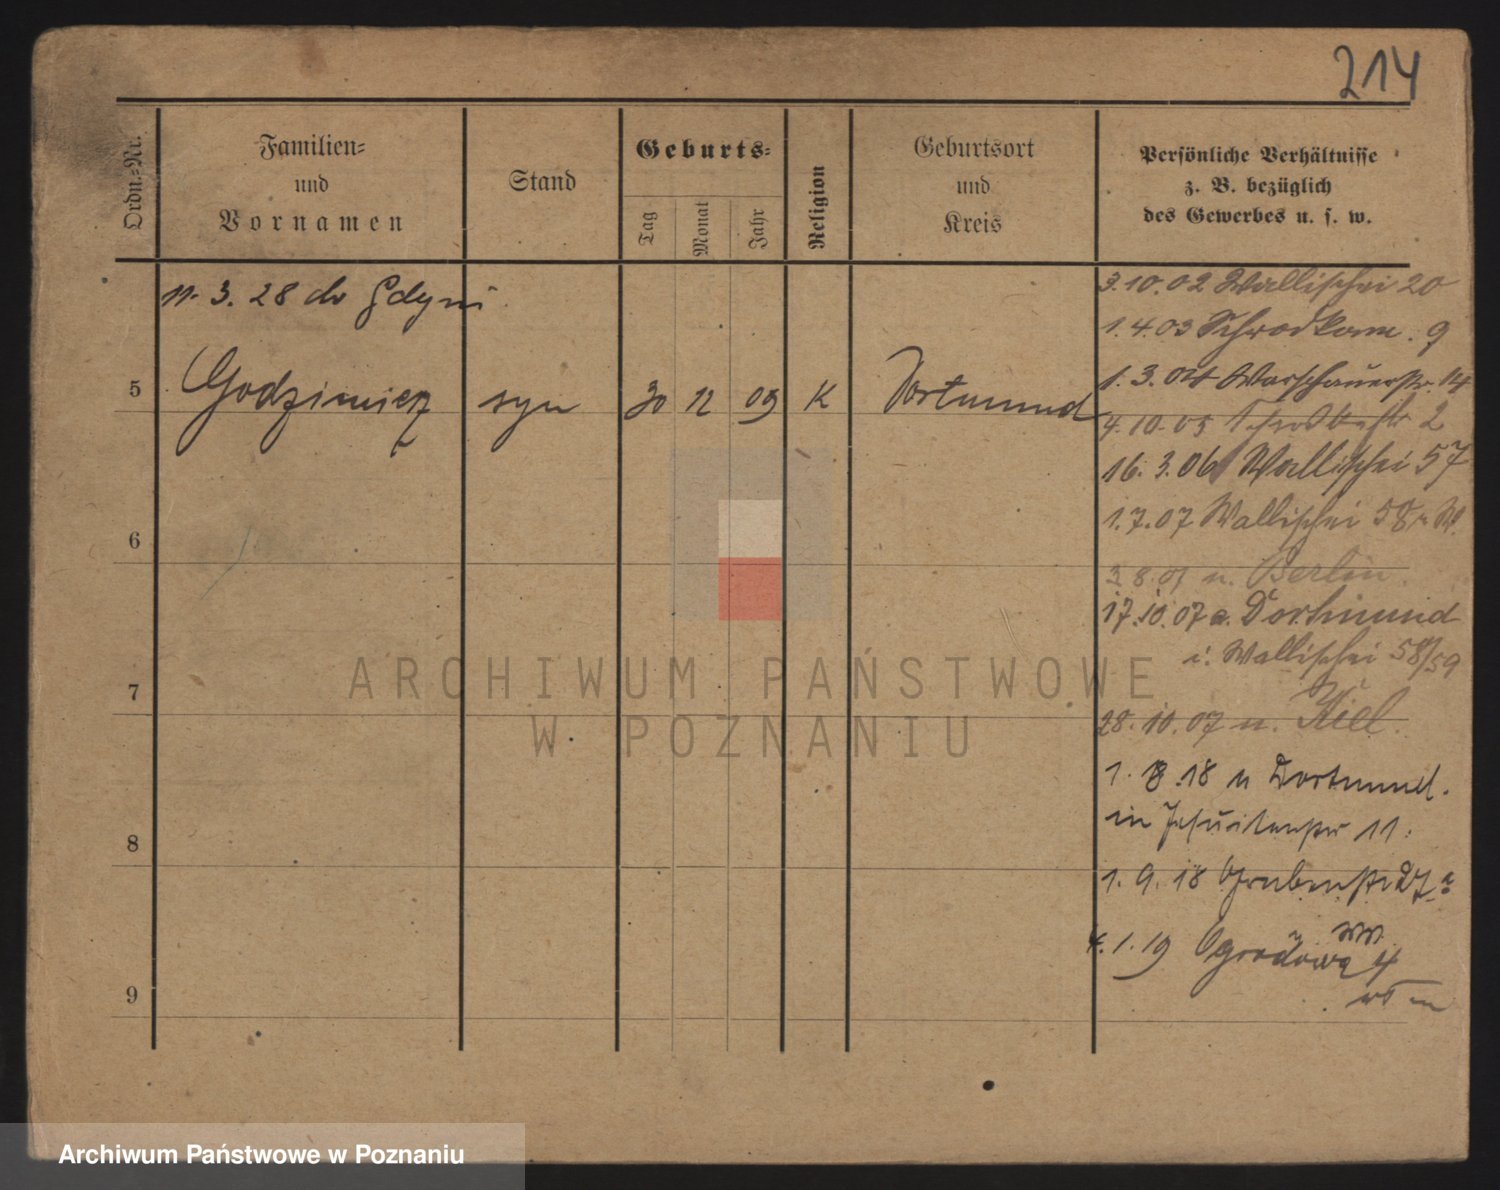 214
Ordn.-Nr.
Familien-
und
Vornamen
Stand
Geburts-
Tag
Monat
Jahr
Religion
Geburtsort
und
Kreis
Persönliche Verhältnisse
z. B. bezüglich
des Gewerbes u. s. w.
11. 3. 28 do Gdyni
5 Godzimierz syn 30 12 09 K Dortmund
6
7
8
9
3.10.02 Wallischei 20
1.4.03 Schrodkam. 9
1.3.04 Warschauerstr. 14
4.10.05 2
16.3.06 Wallischei 57
1.7.07 Wallischei 58 b. W.
n. Berlin.
17.10.07 a. Dortmund
i. Wallischei 58/59
28.10.07 n. Kiel.
1. 8. 18 v Dortmund.
in Jesuitenstr 11.
1. 9. 18 Grabenstr 27
4. 1. 19 Ogrodowa 4
ARCHIWUM PAŃSTWOWE
W POZNANIU
Archiwum Państwowe w Poznaniu